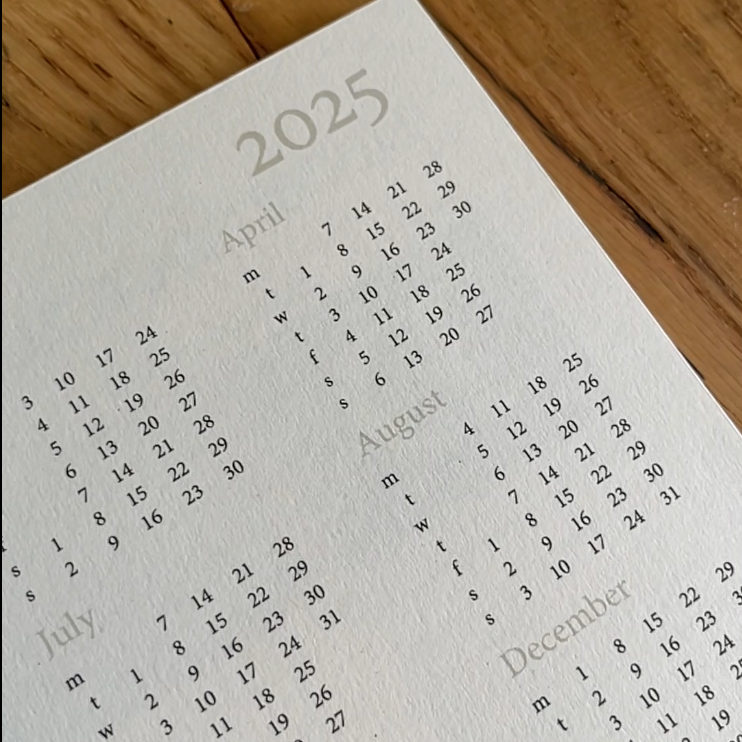 2025
3 10 17 24
4 11 18 25
5 12 19 26
6 13 20 27
7 14 21 28
s 1 8 15 22 29
s 2 9 16 23 30
April
m 7 14 21 28
t 1 8 15 22 29
w 2 9 16 23 30
t 3 10 17 24
f 4 11 18 25
s 5 12 19 26
s 6 13 20 27
July
m 7 14 21 28
t 1 8 15 22 29
w 2 9 16 23 30
3 10 17 24 31
11 18 25
19 26
27
August
m 4 11 18 25
t 5 12 19 26
w 6 13 20 27
t 7 14 21 28
f 1 8 15 22 29
s 2 9 16 23 30
s 3 10 17 24 31
December
m 1 8 15 22 29
t 2 9 16 23
3 10 17 24
11 18
19